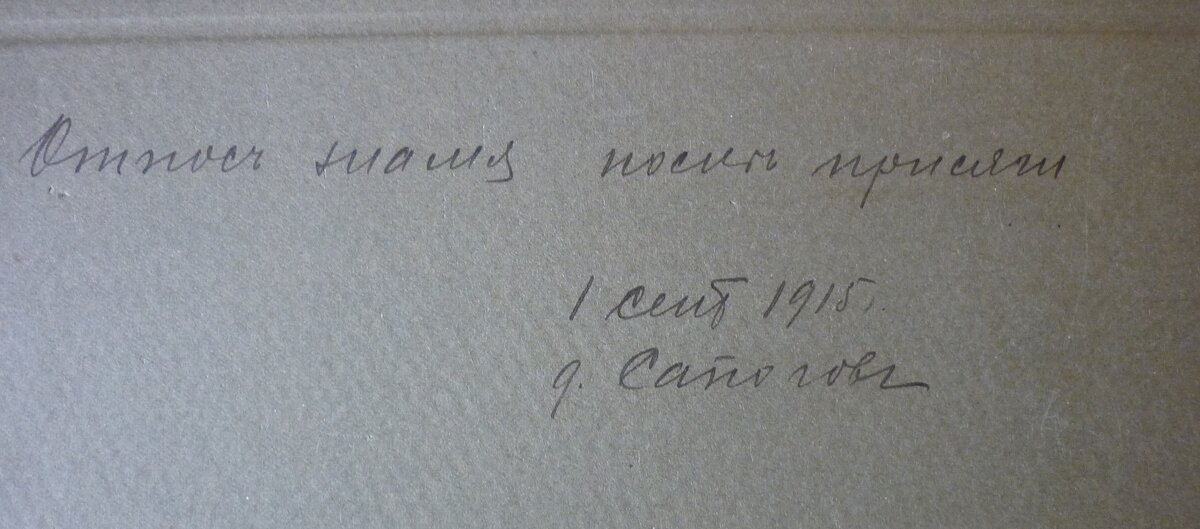 Относъ знамя послѣ присяги
1 сент 1915г.
д. Сапоговъ